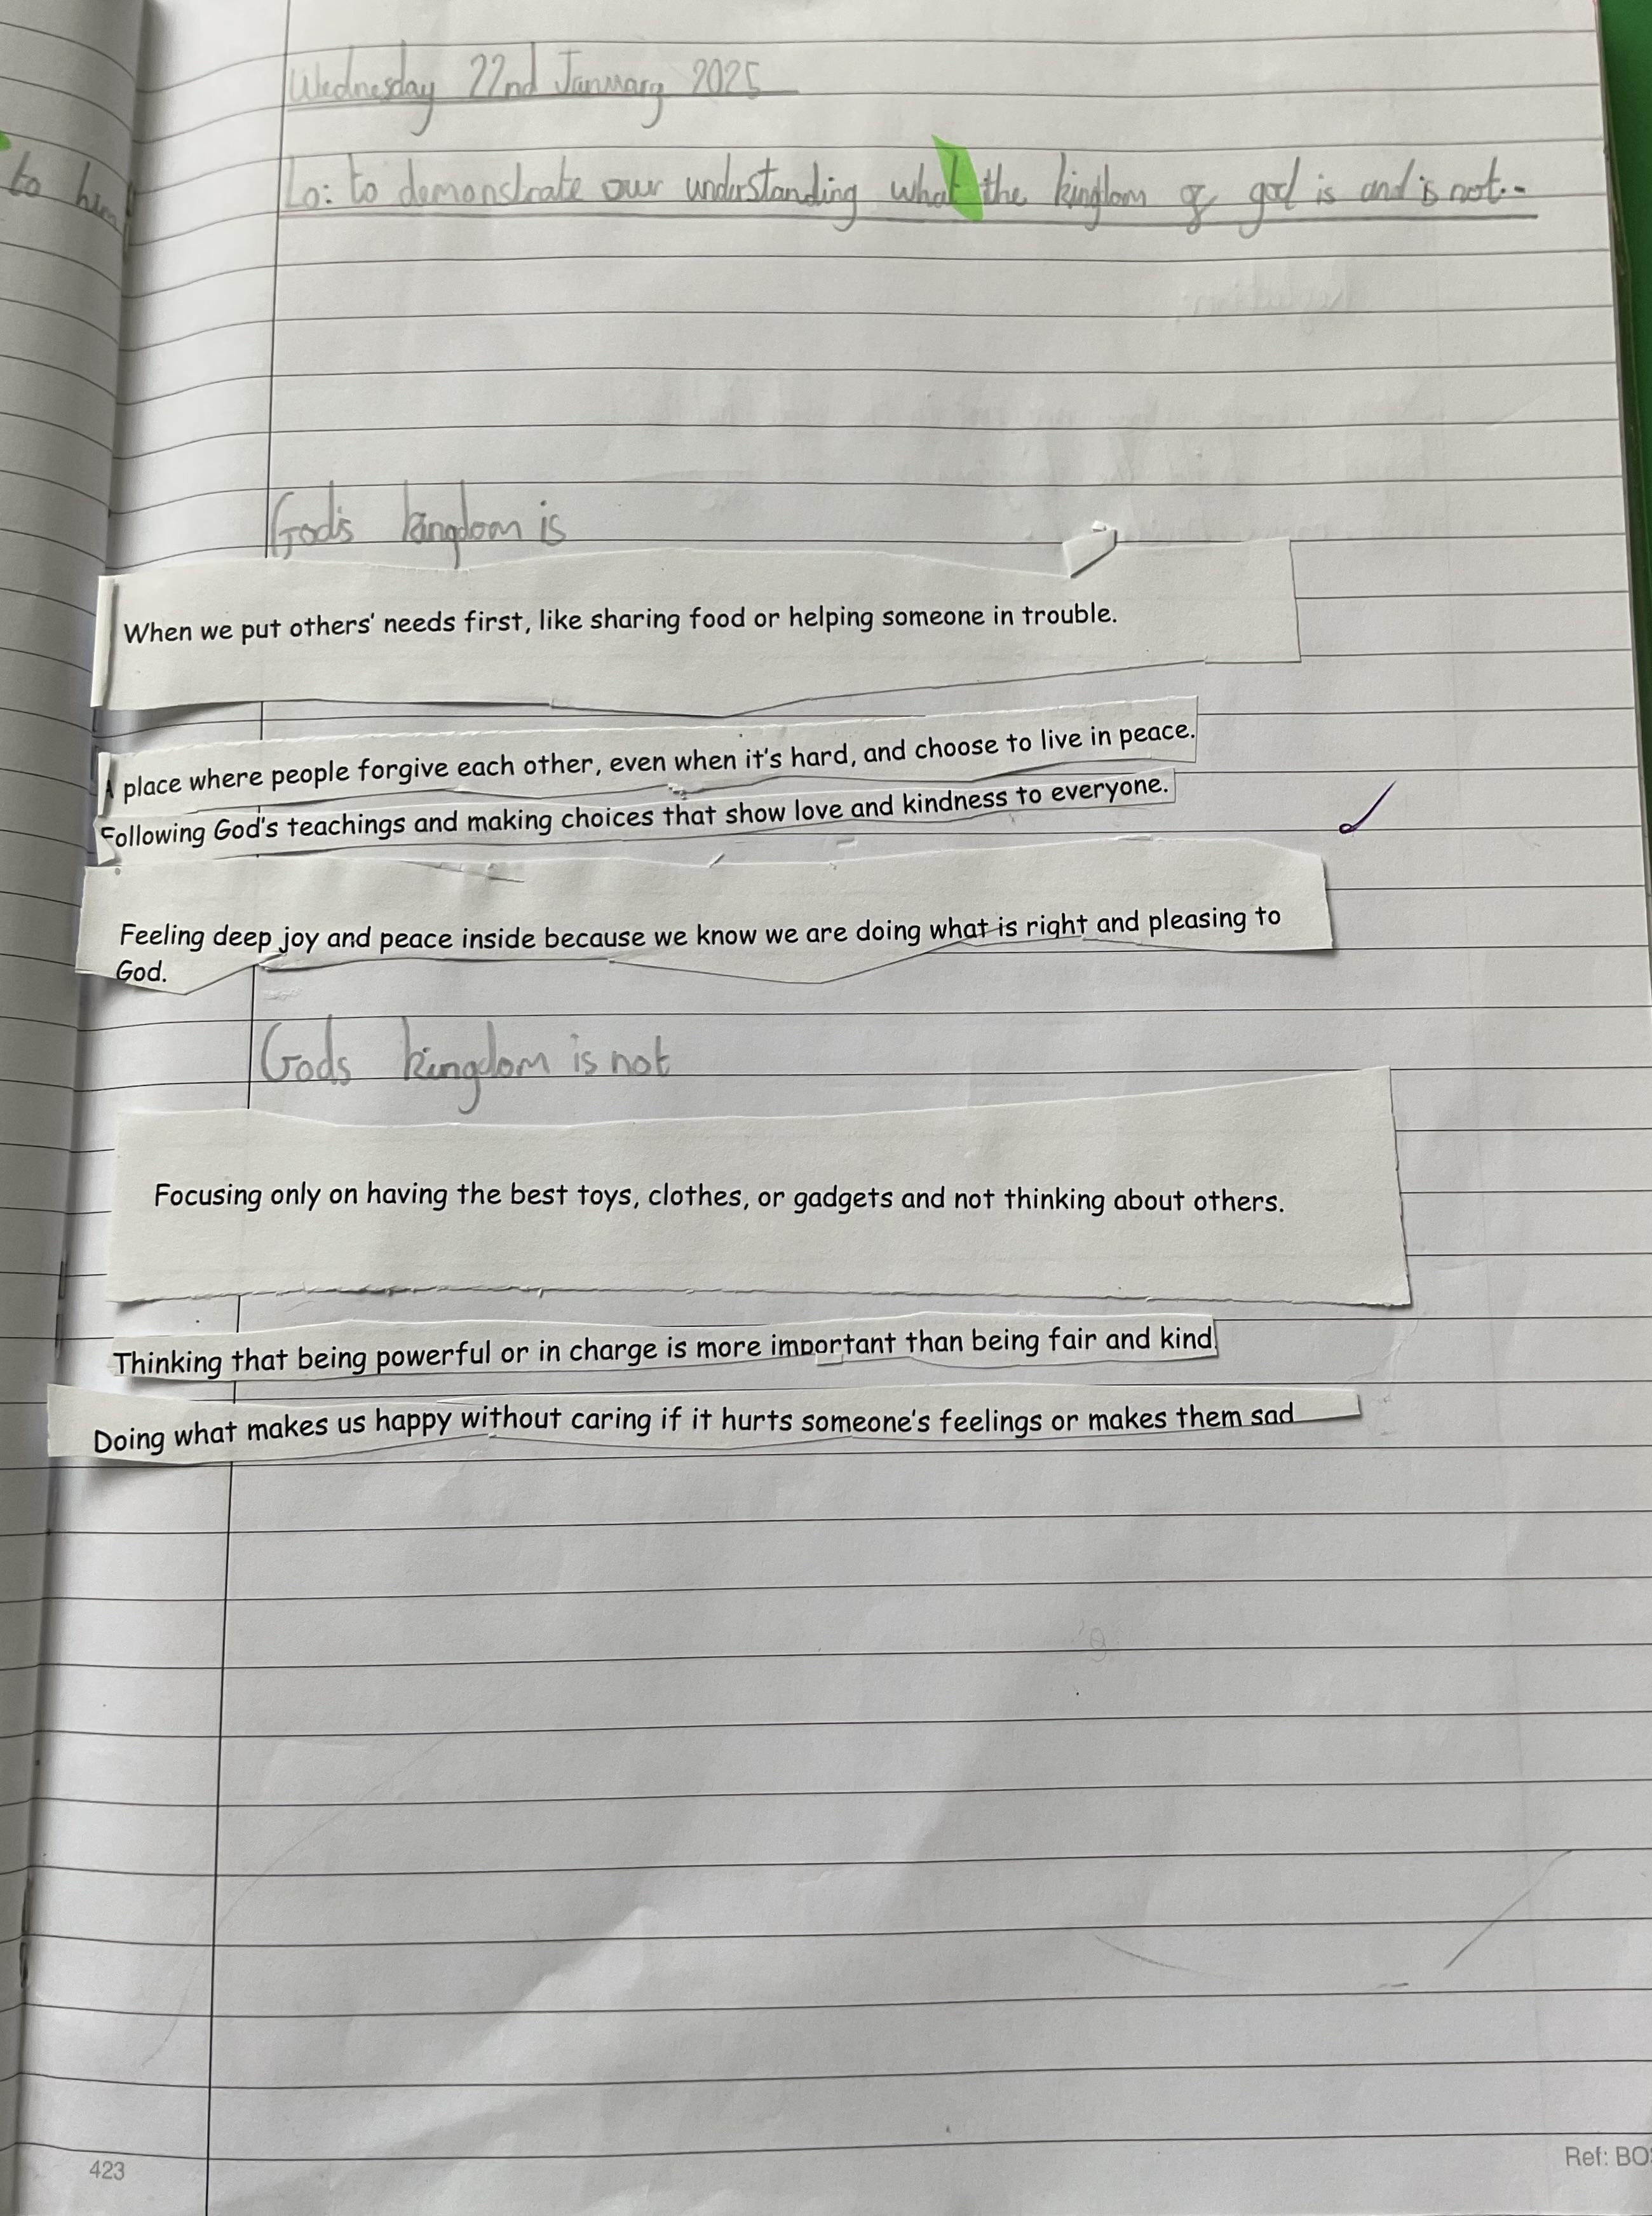 Wednesday 22nd January 2025
to him
Lo: to demonstrate our understanding what the kingdom of god is and is not..
God's kingdom is
When we put others' needs first, like sharing food or helping someone in trouble.
A place where people forgive each other, even when it's hard, and choose to live in peace.
Following God's teachings and making choices that show love and kindness to everyone.
Feeling deep joy and peace inside because we know we are doing what is right and pleasing to
God.
Gods kingdom is not
Focusing only on having the best toys, clothes, or gadgets and not thinking about others.
Thinking that being powerful or in charge is more important than being fair and kind.
Doing what makes us happy without caring if it hurts someone's feelings or makes them sad
423
Ref: BO